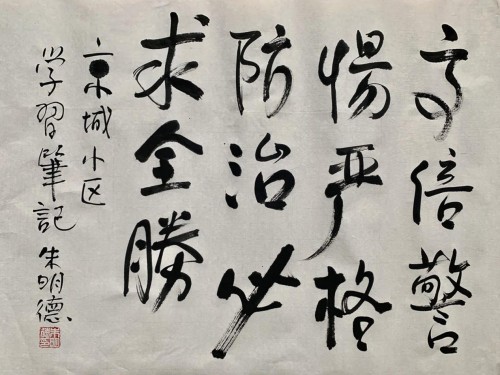 高倍警
惕严格
防治必
求全勝
京城小区
学習筆記 朱明德